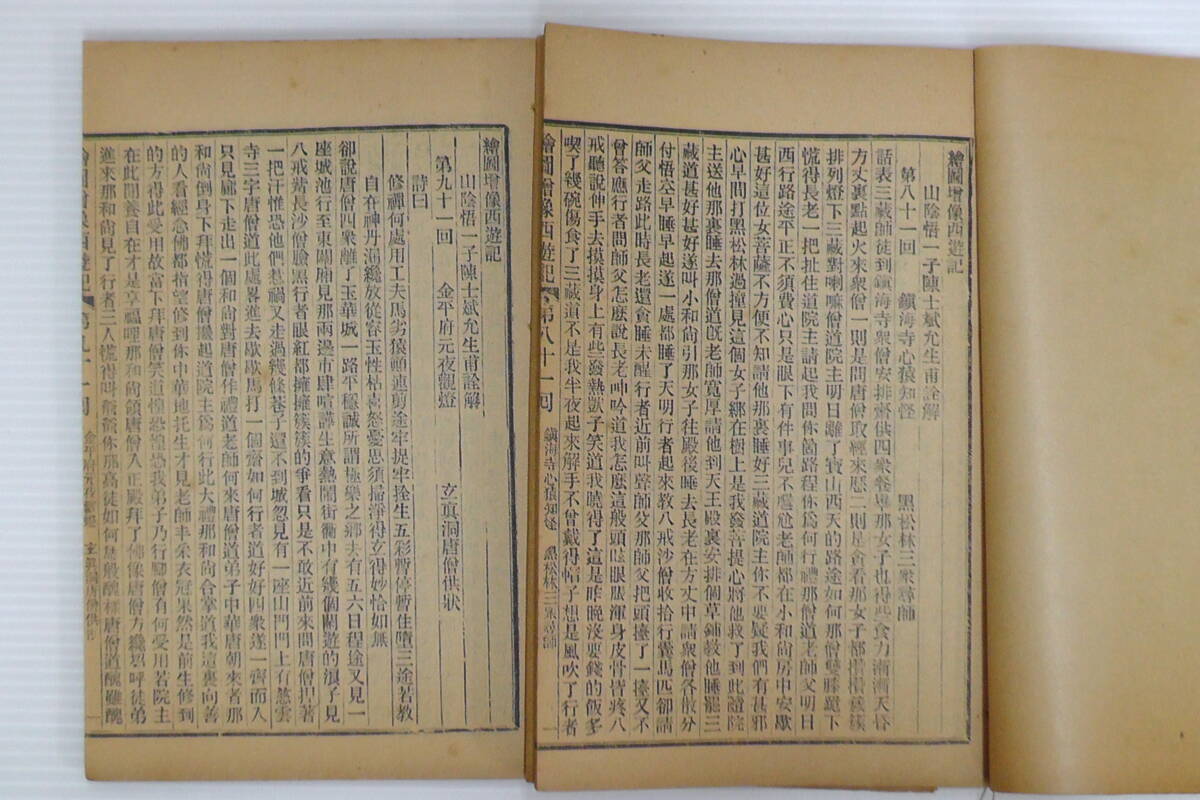 繪圖增像西遊記
山陰悟一子陳士斌允生甫詮解
第八十一回　鎮海寺心猿知怪　黑松林三衆尋師
話表三藏師徒到鎮海寺衆僧安排齋供四衆餐畢那女子也得些食力漸漸天昏
方丈裏點起火來衆僧一則是問唐僧取經來歷二則是貪看那女子都攢攢簇簇
排列燈下三藏對喇嘛僧道院主明日離了寶山西天的路途如何那僧雙膝跪下
慌得長老一把扯住道院主請起我問你箇路程你爲何行禮那僧道老師父明日
西行路途平正不須費心只是眼下有件事兒不尷尬老師都在小和尚房中安歇
甚好這位女菩薩不方便不知請他那裏睡好三藏道院主你不要疑我們有甚邪
心早間打黑松林過撞見這個女子綁在樹上是我發菩提心將他救了到此隨院
主送他那裏睡去那僧道旣老師寬厚請他到天王殿裏安排個草鋪敎他睡罷三
藏道甚好甚好遂叫小和尚引那女子往殿後睡去長老在方丈中請衆僧各散分
付悟空早睡早起遂一處都睡了天明行者起來敎八戒沙僧收拾行囊馬匹卻請
師父走路此時長老還貪睡未醒行者近前叫聲師父那師父把頭擡了一擡又不
曾答應行者問師父怎麽說長老呻吟道我怎麽這般頭眩眼脹渾身皮骨皆疼八
戒聽說伸手去摸摸身上有些發熱獃子笑道我曉得了這是昨晚沒要錢的飯多
喫了幾碗傷食了三藏道不是我半夜起來解手不曾戴得帽子想是風吹了行者
繪圖增像西遊記　第八十一回　鎮海寺心猿知怪　黑松林三衆尋師
繪圖增像西遊記
山陰悟一子陳士斌允生甫詮解
第九十一回　金平府元夜觀燈　玄眞洞唐僧供狀
詩曰
修禪何處用工夫馬劣猿頑速剪途牢捉牢拴生五彩暫停暫住墮三途若敎
自在神丹漏纔放從容玉性枯喜怒憂思須掃淨得玄得妙恰如無
卻說唐僧四衆離了玉華城一路平穩誠所謂極樂之鄉去有五六日程途又見一
座城池行至東關廂見那兩邊市肆喧譁生意熱鬧街衢中有幾個閒遊的浪子見
八戒嘴長沙僧臉黑行者眼紅都擁擁簇簇的爭看只是不敢近前來問唐僧捏著
一把汗惟恐他們惹禍又走過幾條巷子還不到城忽見有一座山門門上有慈雲
寺三字唐僧道此處畧進去歇歇馬打一個齋如何行者道好好四衆遂一齊而入
只見廊下走出一個和尚對唐僧作禮道老師何來唐僧道弟子中華唐朝來者那
和尚倒身下拜慌得唐僧攙起道院主爲何行此大禮那和尚合掌道我這裏向善
的人看經念佛都指望修到你中華地托生才見老師丰采衣冠果然是前生修到
的方得此受用故當下拜唐僧笑道惶恐惶恐我弟子乃行腳僧有何受用若院主
在此閒養自在才是享福哩那和尚領唐僧入正殿拜了佛像唐僧方纔招呼徒弟
進來那和尚見了行者三人慌得叫爺爺你那高徒如何恁般醜樣唐僧道醜雖醜